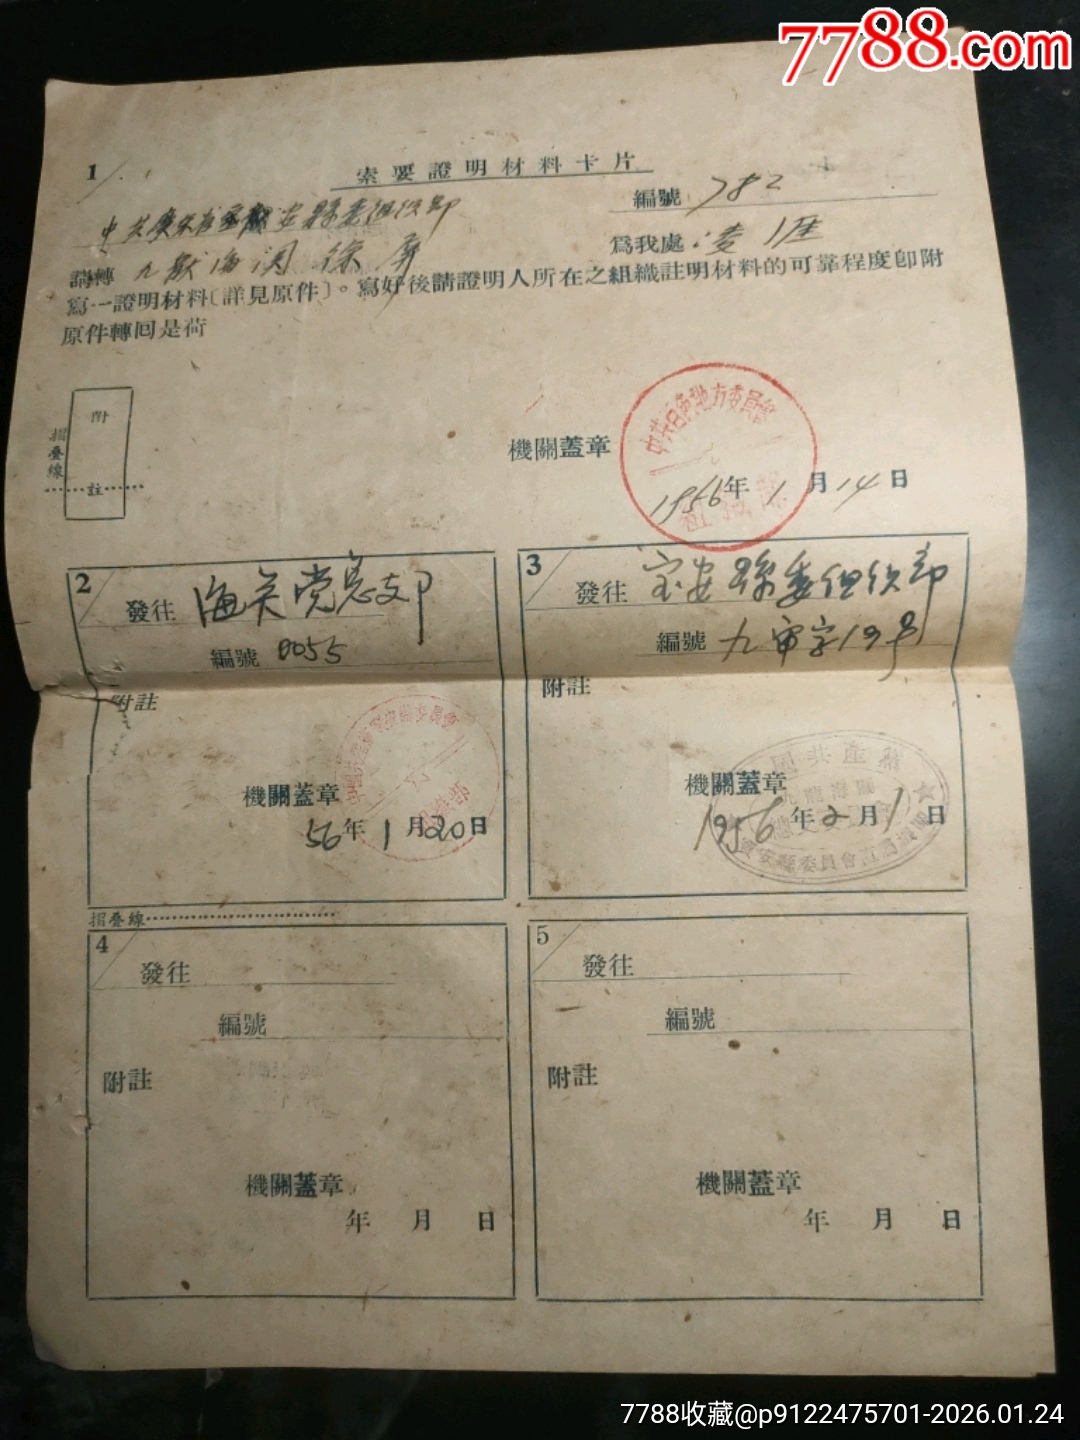 7788.com
1
索要證明材料卡片
編號 782
中共廣东省宝安縣委组织部
請轉 九龙海関 徐屏
為我處 凌
寫一證明材料〔詳見原件〕。寫好後請證明人所在之組織註明材料的可靠程度卽附
原件轉囘是荷
附
註
摺疊線
機關蓋章
中共百色地方委員會
組織部
1956年1月14日
2
發往 海关党总支部
編號 0055
附註
機關蓋章
56年1月20日
3
發往 宝安縣委组织部
編號 九审字19号
附註
機關蓋章
中國共產黨
寶安縣委員會
1956年2月1日
摺疊線
4
發往
編號
附註
機關蓋章
年 月 日
5
發往
編號
附註
機關蓋章
年 月 日
7788收藏@p9122475701-2026.01.24